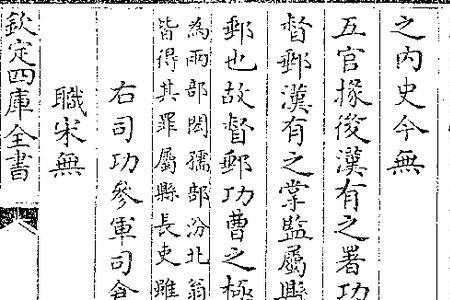 之内史今無
五官掾後漢有之署功
督郵漢有之掌監屬縣
郵也故督郵功曹之極
為兩部閎孺部汾北翁
皆得其罪屬縣長吏雖
右司功參軍司
職宋無
欽定四庫全書